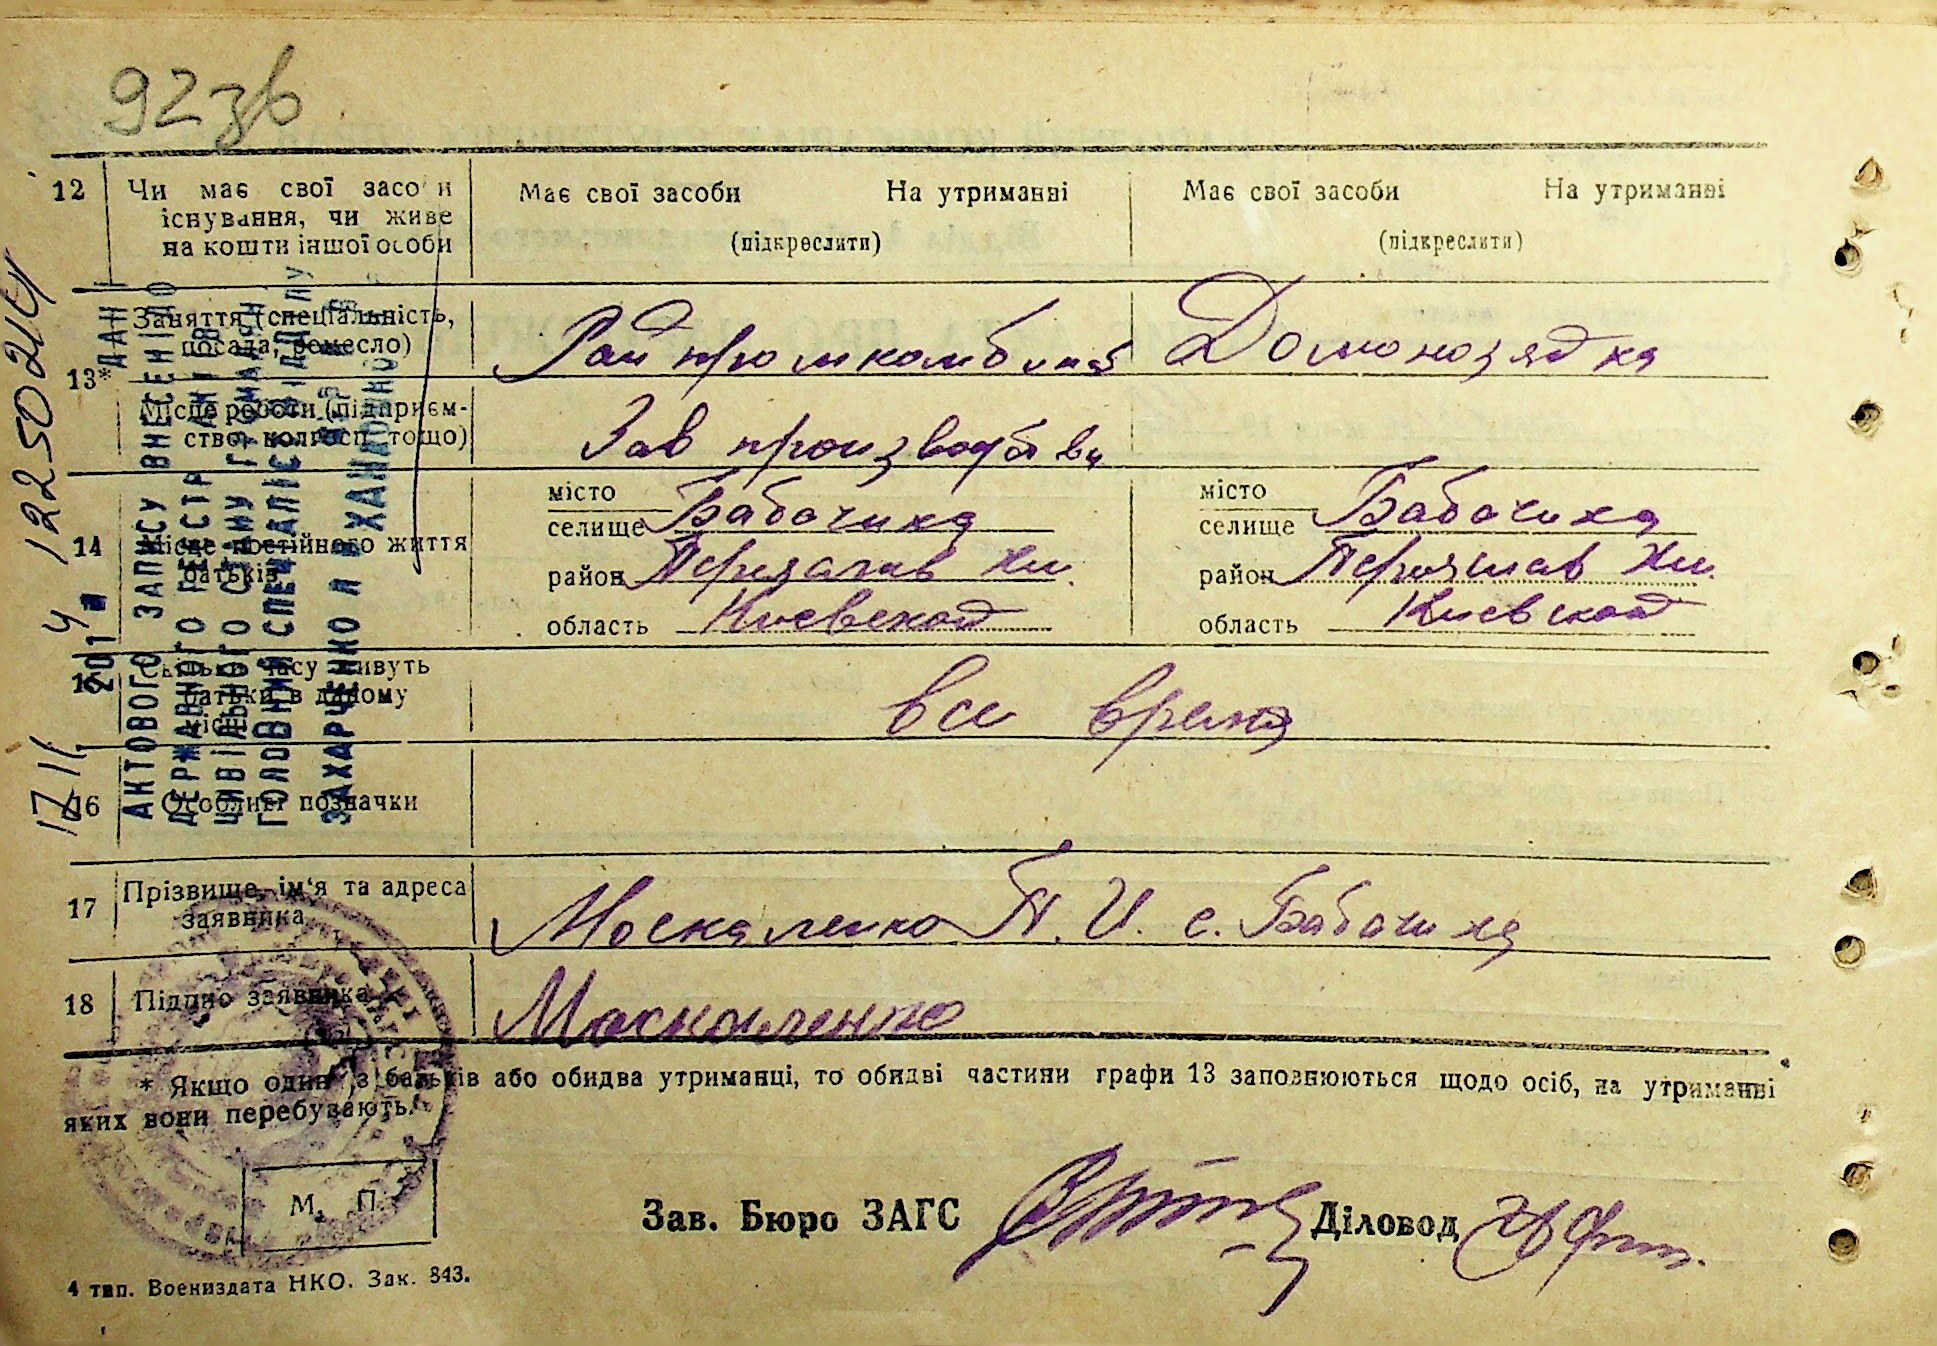 92зв
12 Чи має свої засоби існування, чи живе на кошти іншої особи
Має свої засоби На утриманні
(підкреслити)
Має свої засоби На утриманні
(підкреслити)
13* Заняття (спеціальність, посада, ремесло)
Райпромкомбинат
Домохозядка
Місце роботи (підприємство, колгосп тощо)
Зав производства
14 Місце постійного життя батьків
місто
селище Бабачиха
район Переяслав Хм.
область Киевской
місто
селище Бабачиха
район Переяслав Хм.
область Киевской
15 Скільки часу живуть батьки в даному місці
все время
16 Особливі позначки
17 Прізвище, ім'я та адреса заявника
Москаленко П. И. с. Бабачиха
18 Підпис заявника
Москаленко
* Якщо один з батьків або обидва утриманці, то обидві частини графи 13 заповнюються щодо осіб, на утриманні
яких вони перебувають.
М. П.
Зав. Бюро ЗАГС
Діловод
4 тип. Воениздата НКО. Зак. 843.
ДАНІ
АКТОВОГО ЗАПИСУ ВНЕСЕНІ ДО
ДЕРЖАВНОГО РЕЄСТРУ АКТІВ
ЦИВІЛЬНОГО СТАНУ ГРОМАДЯН
ГОЛОВНИЙ СПЕЦІАЛІСТ ВІДДІЛУ
ЗАХАРЧЕНКО Л
2014
12250214